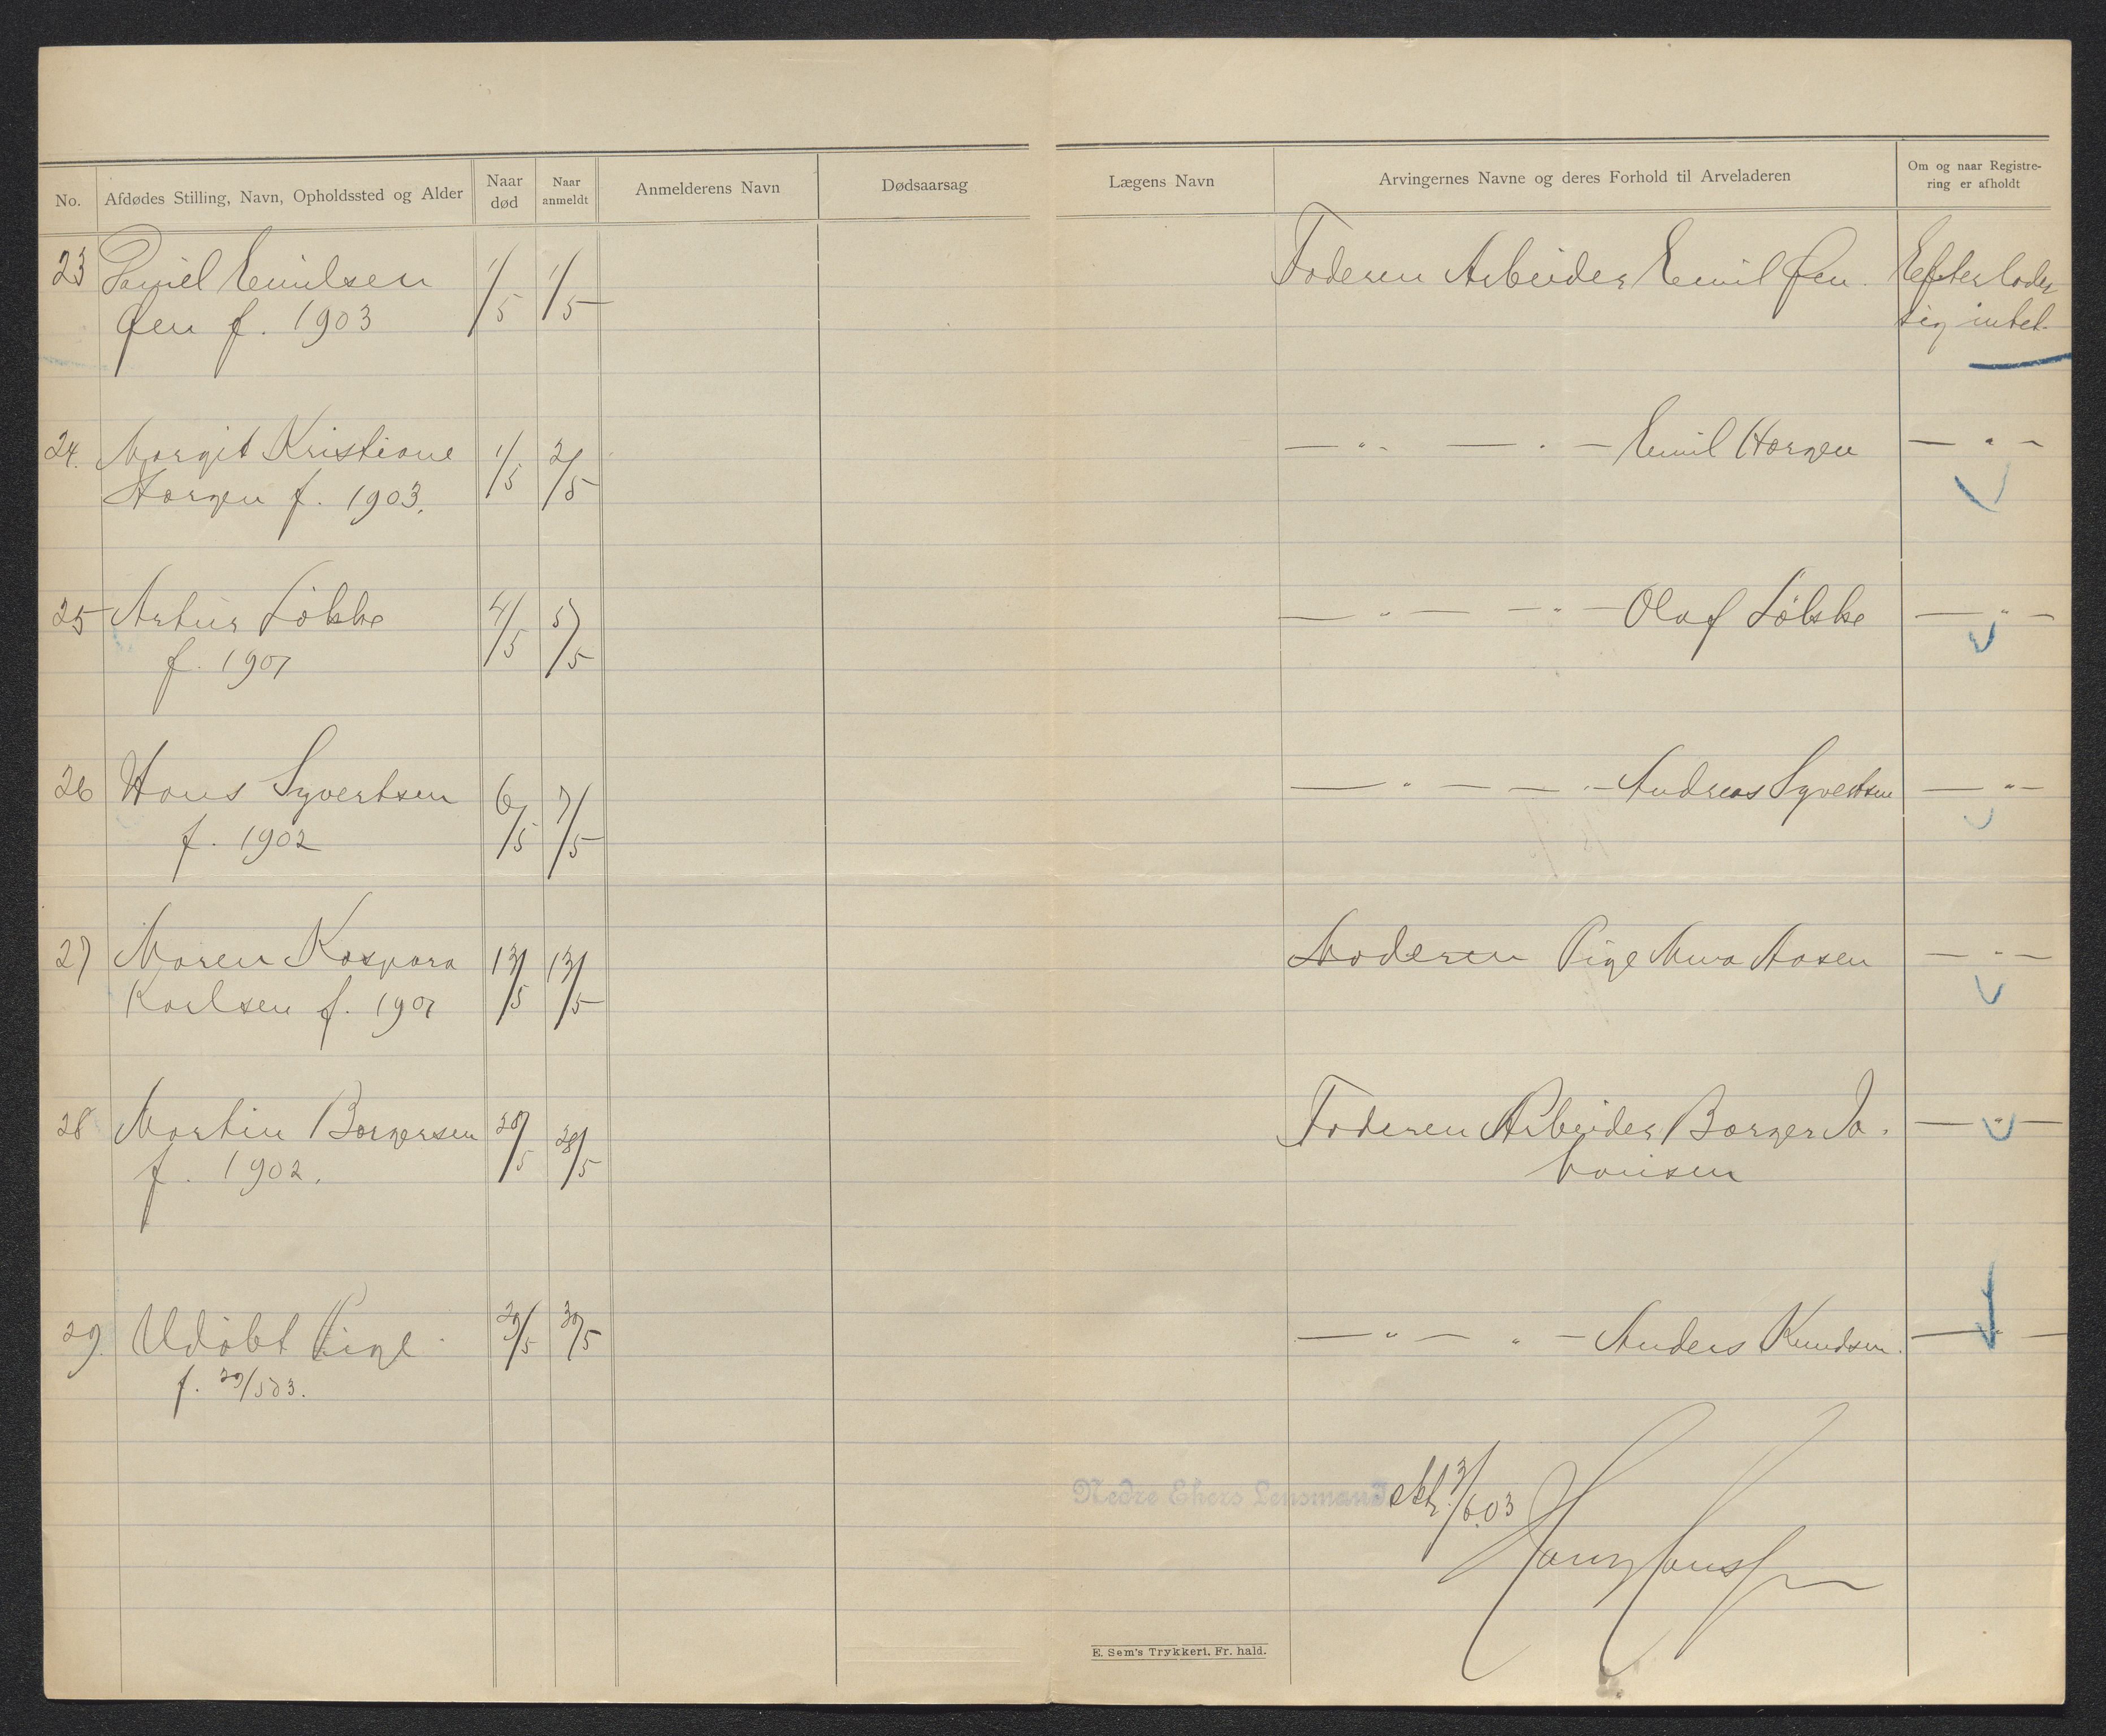 No. Afdødes Stilling, Navn, Opholdssted og Alder Naar død Naar anmeldt Anmelderens Navn Dødsaarsag Lægens Navn Arvingernes Navne og deres Forhold til Arveladeren Om og naar Registrering er afholdt
23 Daniel Emilsen 1/5 1/5 Faderen Arbeider Emil Øen. Efterlader
Øen f. 1903 sig intet.
24. Margit Kristiane 1/5 2/5 — " — — " — Emil Horgen — " —
Horgen f. 1903.
25 Artur Løkke 4/5 5/5 — " — — " — Olaf Løkke — " —
f. 1901
26 Hans Syvertsen 6/5 7/5 — " — — " — Andreas Syvertsen — " —
f. 1902
27 Maren Kaspara 13/5 13/5 Moderen Pige Aasen — " —
Karlsen f. 1901
28 Martin Borgersen 28/5 28/5 Faderen Arbeider Borger Jo- — " —
f. 1902. hansen
29. Udøbt Pige 29/5 30/5 — " — " — Anders Knudsen. — " —
f. 29/5 03.
Nedre Ekers Lensmand 3/6.03
E. Sem's Trykkeri, Fr. hald.